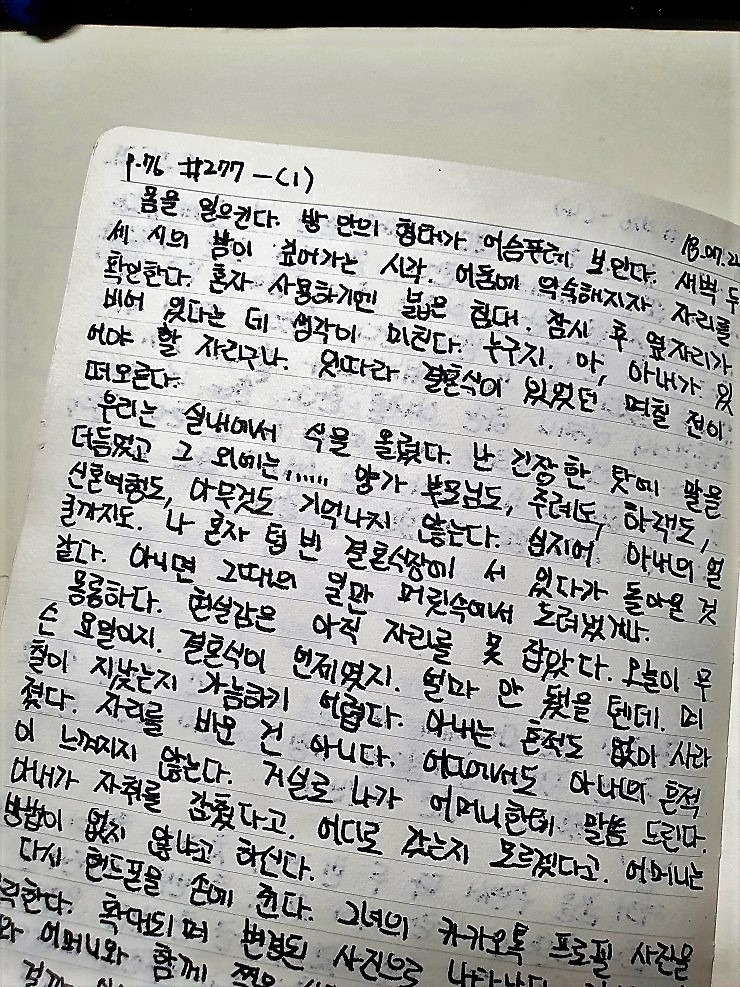 p.76 #277-(1)
18.07.2
몸을 일으킨다. 방 안의 형태가 어슴푸레 보인다. 새벽 두
세 시의 밤이 깊어가는 시각. 어둠에 익숙해지자 자리를
확인한다. 혼자 사용하기엔 넓은 침대. 잠시 후 옆자리가
비어 있다는 데 생각이 미친다. 누구지. 아, 아내가 있
어야 할 자리구나. 잇따라 결혼식이 있었던 며칠 전이
떠오른다.
우리는 실내에서 식을 올렸다. 난 긴장한 탓에 말을
더듬었고 그 외에는...... 양가 부모님도, 주례도, 하객도,
신혼여행도, 아무것도 기억나지 않는다. 심지어 아내의 얼
굴까지도. 나 혼자 텅 빈 결혼식장에 서 있다가 돌아온 것
같다. 아니면 그때의 일만 머릿속에서 도려냈거나.
몽롱하다. 현실감은 아직 자리를 못 잡았다. 오늘이 무
슨 요일이지. 결혼식이 언제였지. 얼마 안 됐을 텐데. 며
칠이 지났는지 가늠하기 어렵다. 아내는 흔적도 없이 사라
졌다. 자리를 비운 건 아니다. 어디에서도 아내의 흔적
이 느껴지지 않는다. 거실로 나가 어머니한테 말씀 드린다.
아내가 자취를 감췄다고. 어디로 갔는지 모르겠다고. 어머니는
방법이 없지 않냐고 하신다.
다시 핸드폰을 손에 쥔다. 그녀의 카카오톡 프로필 사진을
릭한다. 확대되며 변경된 사진으로 나타난다.
와 어머니와 함께 찍은